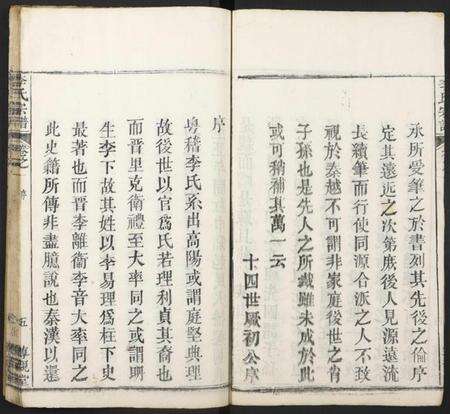 李氏宗譜
承所受彙之於書列其先後之倫序
定其遠近之次第庶後人見源遠流
長續筆而行使同源合派之人不致
視於秦越不可謂非家庭後世之肖
子孫也是先人之所哉雖未成於此
或可稍補其萬一云
十四世厥初公序
序
粵稽李氏系出高陽或謂庭堅典理
故後世以官爲氏若理利貞其裔也
而晋里克衛禮至大率同之或謂聃
生李下故其姓以李易理爲枉下史
最著也而晋李離衞李音大率同之
此史籍所傳非盡臆說也秦漢以還
李氏宗譜
卷之一
序
五